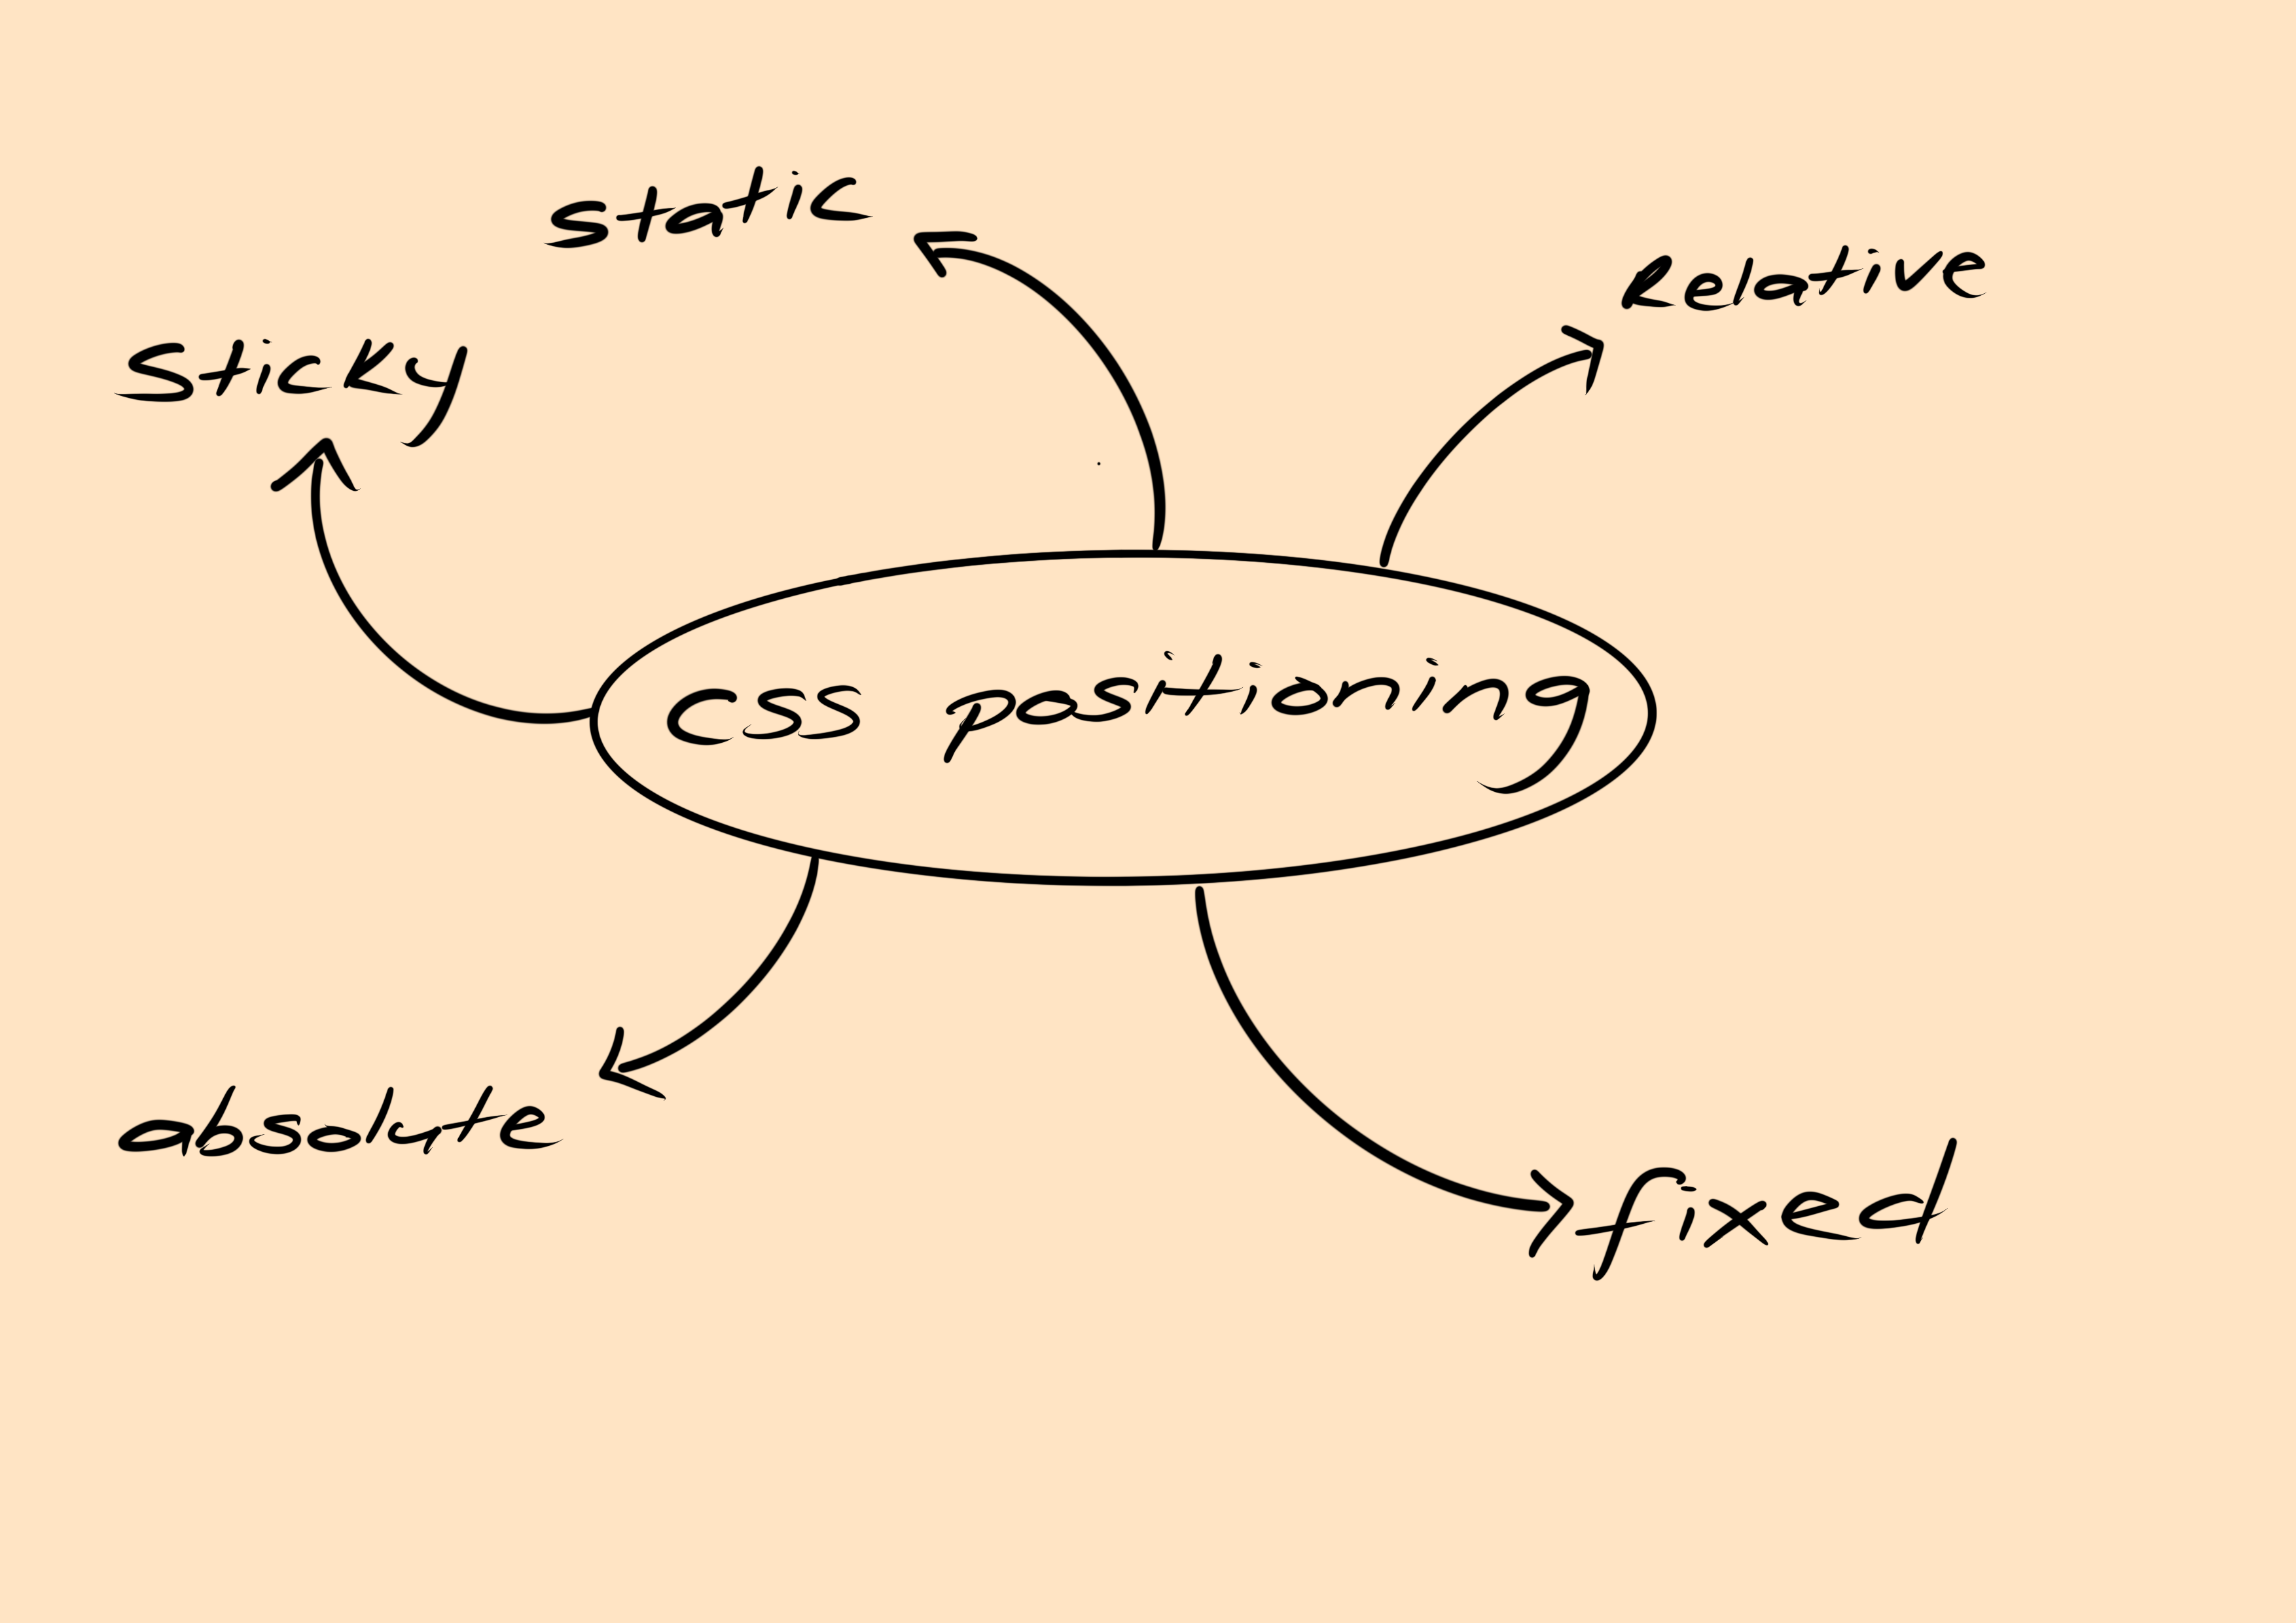 static
Relative
Sticky
css positioning
absolute
fixed